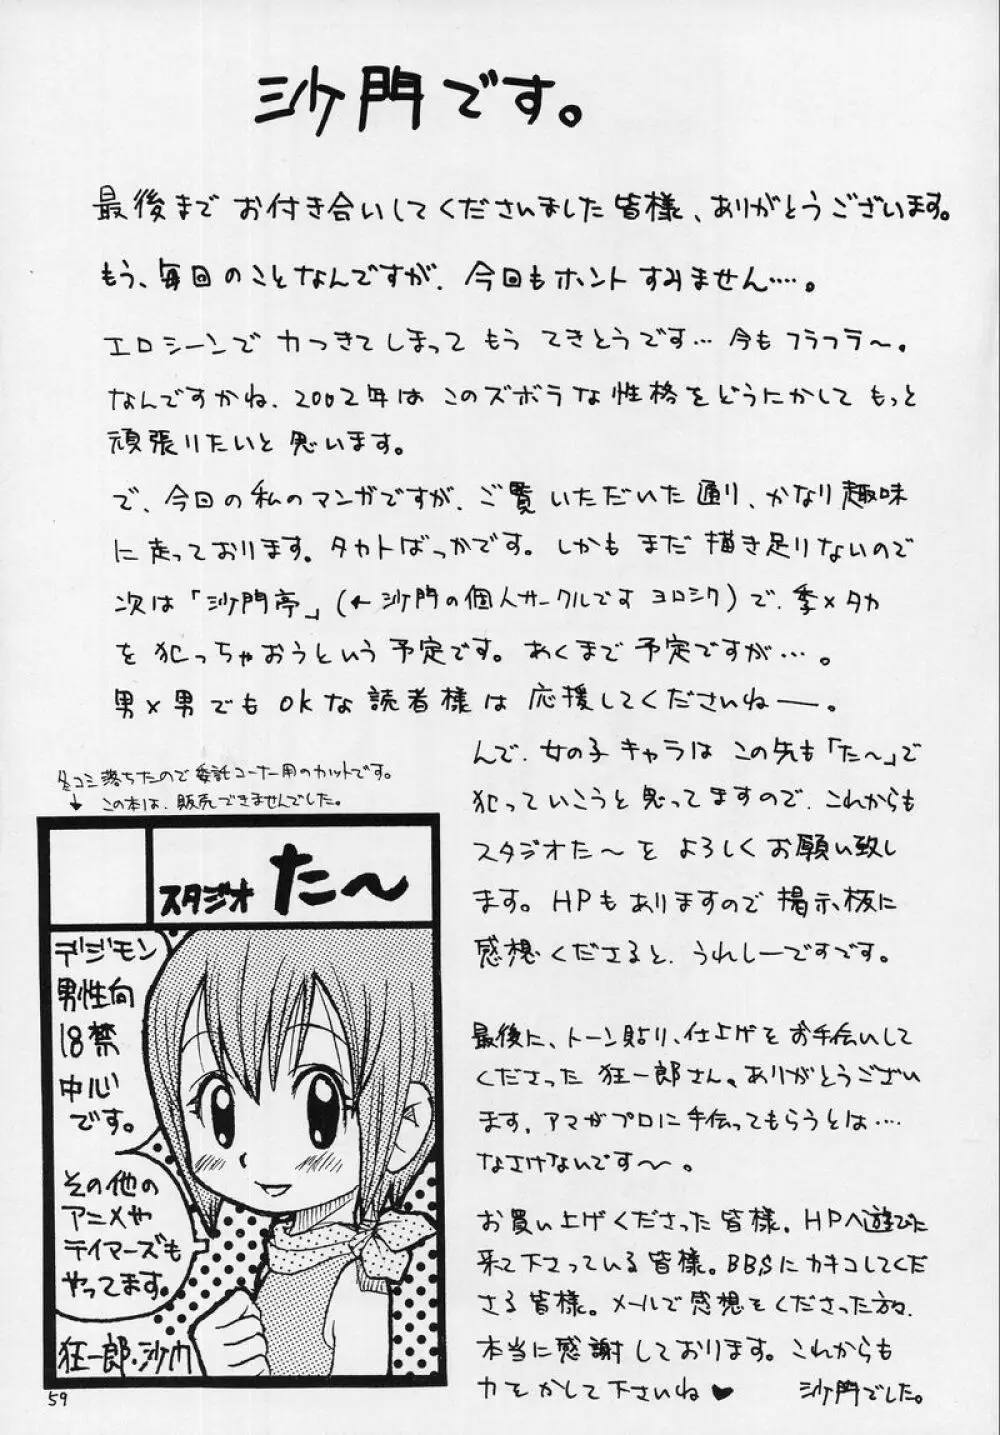 沙門です。
最後まで お付き合いしてくださいました 皆様、ありがとうございます。
もう、毎回のことなんですが、今回もホント すみません……。
エロシーンで 力つきてしまって もう てきとうです… 今も フラフラ～。
なんですかね、2002年は このズボラな性格を どうにかして もっと
頑張りたいと思います。
で、今回の私のマンガですが、ご覧いただいた通り、かなり趣味
に走っております。タカトばっかです。しかも まだ 描き足りないので
次は「沙門亭」(←沙門の個人サークルです ヨロシク)で、季×タカ
を 犯っちゃおうという予定です。あくまで予定ですが…。
男×男でも OKな読者様は 応援してくださいねー。
んで、女の子キャラは この先も「た～」で
犯っていこうと思ってますので、これからも
スタジオた～を よろしくお願い致し
ます。HPもありますので 掲示板に
感想くださると、うれしーですです。
最後に、トーン貼り、仕上げを お手伝いして
くださった 狂一郎さん。ありがとうござい
ます。アマがプロに手伝ってもらうとは……
なさけないです～。
お買い上げくださった 皆様。HPへ遊びに
来て下さっている皆様。BBSにカキコしてくだ
さる皆様。メールで感想をくださった方々、
本当に感謝しております。これからも
力をかして下さいね♥
沙門でした。
冬コミ落ちたので 委託コーナー用のカットです。
↓この本は、販売できませんでした。
スタジオ た～
デジモン
男性向
18禁
中心
です。
その他の
アニメや
テイマーズも
やってます
狂一郎・沙門
59